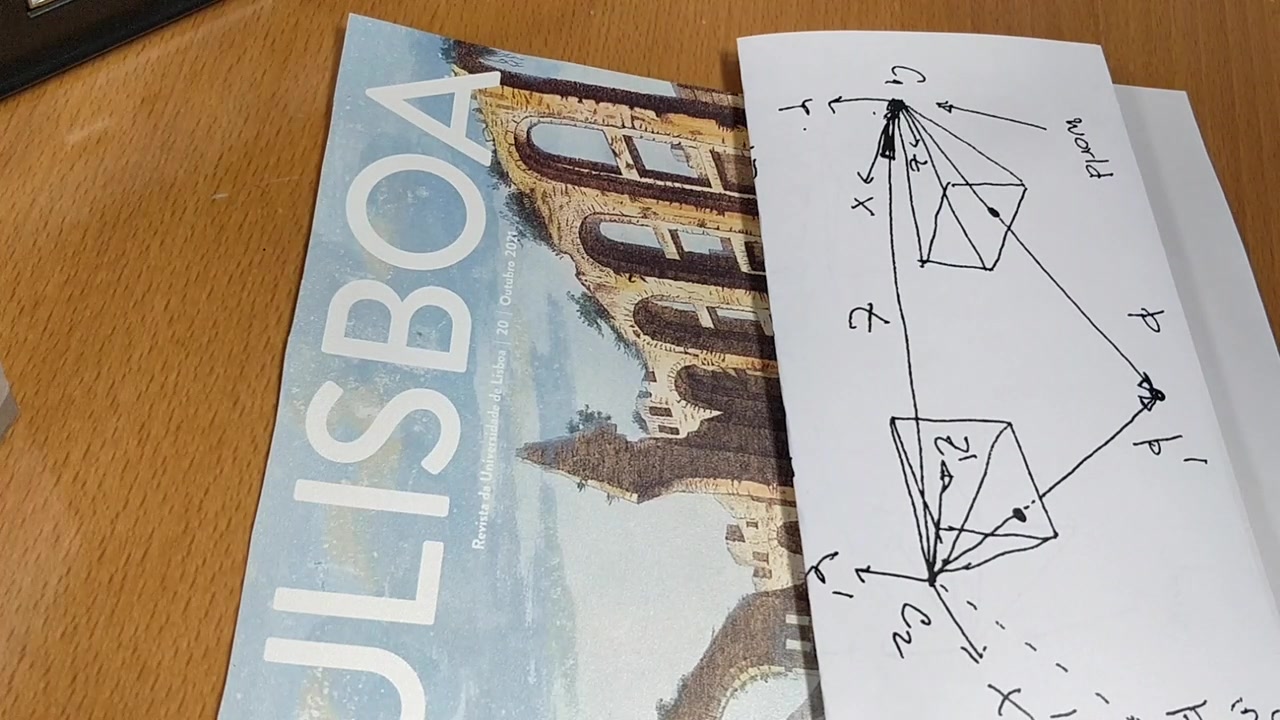 ULISBOA
Revista da Universidade de Lisboa | 20 | Outubro 2021
C1
world
x
z
p
p'
z'
C2
x